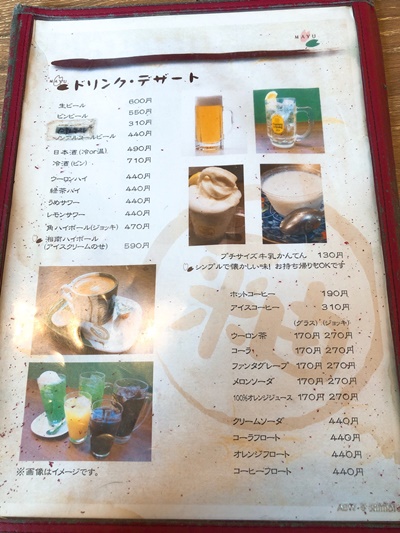 MAYO
ドリンク・デザート
生ビール 600円
ビンビール 550円
310円
ノンアルコールビール 440円
日本酒(冷or温) 490円
冷酒(ビン) 710円
ウーロンハイ 440円
緑茶ハイ 440円
うめサワー 440円
レモンサワー 440円
角ハイボール(ジョッキ) 470円
湘南ハイボール
(アイスクリームのせ) 590円
プチサイズ牛乳かんてん 130円
シンプルで懐かしい味! お持ち帰りもOKです
ホットコーヒー 190円
アイスコーヒー 310円
(グラス) (ジョッキ)
ウーロン茶 170円 270円
コーラ 170円 270円
ファンタグレープ 170円 270円
メロンソーダ 170円 270円
100%オレンジジュース 170円 270円
クリームソーダ 440円
コーラフロート 440円
オレンジフロート 440円
コーヒーフロート 440円
※画像はイメージです。